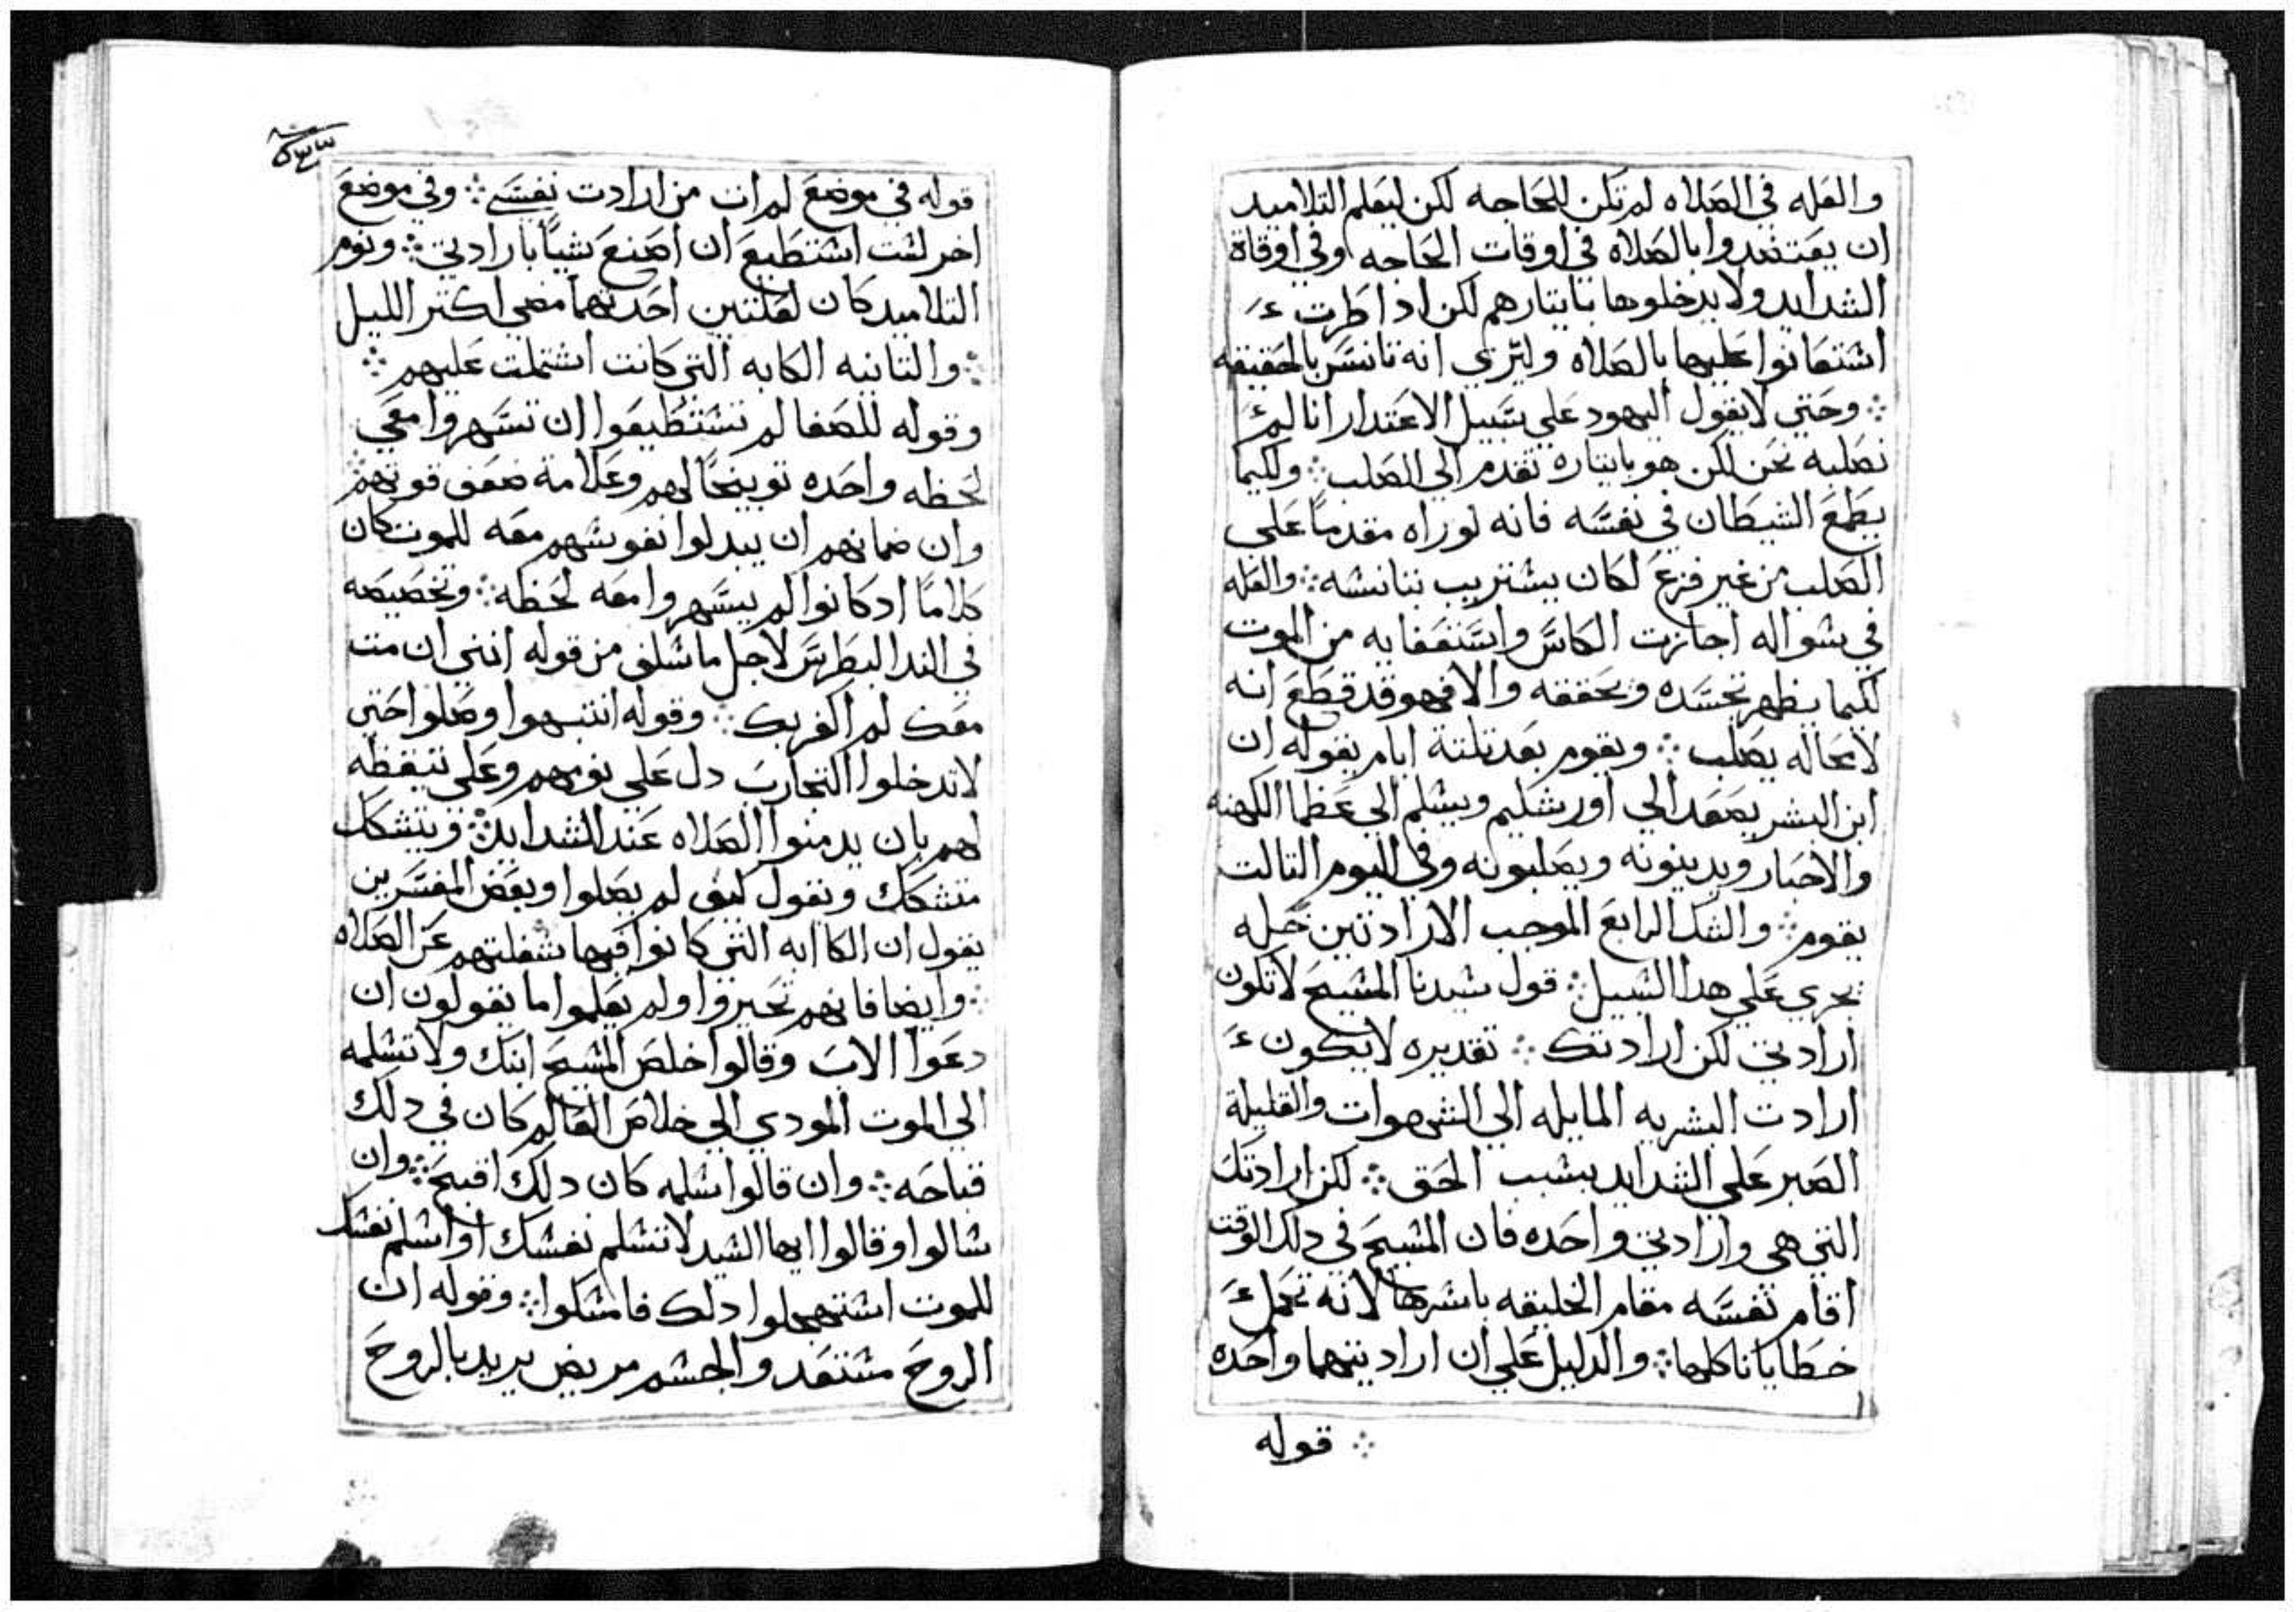 والعله في الصلاه لم تكن للحاجه لكن ليعلم التلاميد
ان يعتضدوا بالصلاه في اوقات الحاجه وفي اوقاة
الشدايد ولا يدخلوها بايتارهم لكن ادا طرت
اشتعانوا عليها بالصلاه وليري انه تانس بالحقيقه
؞ وحتي لا يقول اليهود علي سبيل الاعتدار انا لم
نصلبه نحن لكن هو بايتاره تقدم الي الصلب ؞ ولكيما
يطمع الشيطان في نفسه فانه لو راه مقدماً علي
الصلب من غير فزع لكان يشتريب بتانسه ؞ والعله
في شواله اجازت الكاس واستعفايه من الموت
لكيما يظهر تجسده ويحققه والا فهو قد قطع انه
لا محاله يصلب ؞ ويقوم بعد تلتة ايام بقوله ان
ابن البشر يصعد الي اورشليم ويشلم الي عظما الكهنه
والاحبار ويدينونه ويصلبونه وفي اليوم التالت
يقوم ؞ والشك الرابع الموجب الارادتين حله
يجري علي هدا الشبيل ؞ قول شيدنا المشيح لا تكون
ارادتي لكن ارادتك ؞ تقديره لا يكون
ارادت البشريه المايله الي الشهوات والقليلة
الصبر علي الشدايد بشبب الحق ؞ لكن ارادتك
التي هي وارادتي واحده فان المشيح في دلك الوقت
اقام نفسه مقام الخليقه باشرها لانه تحمل
خطايانا كلها ؞ والدليل علي ان ارادتيهما واحده
؞ قوله
قوله في موضع لم ات من ارادت نفسي ؞ وفي موضع
اخر لشت اشتطيع ان اصنع شياً بارادتي ؞ ونوم
التلاميد كان لعلتين احدتهما مضي اكتر الليل
؞ والتانيه الكابه التي كانت اشتملت عليهم ؞
وقوله للصفا لم تشتطيعوا ان تسهروا معي
لحظه واحده توبيخاً لهم وعلامة ضعف قوتهم
وان ضمانهم ان يبدلوا نفوشهم معه للموت كان
كلاماً اد كانوا لم يسهروا معه لحظه ؞ وتخصيصه
في الندا لبطرس لاجل ما شلف من قوله انني ان مت
معك لم اكفر بك ؞ وقوله انتبهوا وصلوا حتي
لا تدخلوا التجارب دل علي نومهم وعلي تيقظه
لهم بان يدمنوا الصلاه عند الشدايد ؞ ويتشكك
متشكك ويقول كيف لم يصلوا وبعض المفسرين
يقول ان الكاابه التي كانوا فيها شغلتهم عن الصلاه
؞ وايضا فانهم تحيروا ولم يعلموا ما يقولون ان
دعوا الاب وقالوا خلص المشيح ابنك ولا تشلمه
الي الموت المودي الي خلاص العالم كان في دلك
قباحه ؞ وان قالوا شلمه كان دلك اقبح ؞ وان
شالوا وقالوا ايها الشيد لا تشلم نفشك او اشلم نفشك
للموت اشتجهلوا دلك فامشكوا ؞ وقوله ان
الروح مشتعد والجشم مريض يريد بالروح